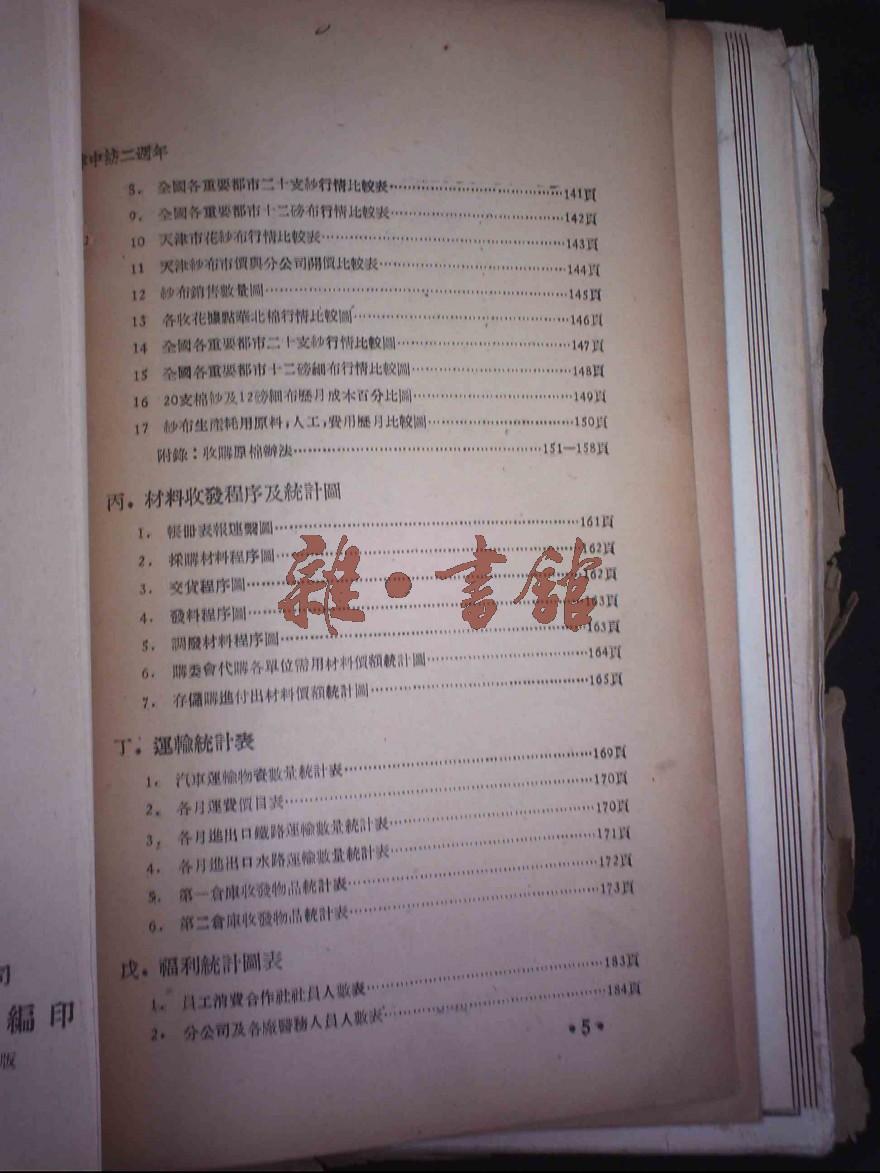 津中紡二週年
8. 全國各重要都市二十支紗行情比較表……141頁
9. 全國各重要都市十二磅布行情比較表……142頁
10 天津市花紗布行情比較表……143頁
11 天津紗布市價與分公司開價比較表……144頁
12 紗布銷售數量圖……145頁
13 各收花據點華北棉行情比較圖……146頁
14 全國各重要都市二十支紗行情比較圖……147頁
15 全國各重要都市十二磅細布行情比較圖……148頁
16 20支棉紗及12磅細布歷月成本百分比圖……149頁
17 紗布生產耗用原料,人工,費用歷月比較圖……150頁
附錄:收購原棉辦法……151—158頁
丙.材料收發程序及統計圖
1. 帳冊表報連繫圖……161頁
2. 採購材料程序圖……162頁
3. 交貨程序圖……162頁
4. 發料程序圖……163頁
5. 調廢材料程序圖……163頁
6. 購委會代購各單位需用材料價額統計圖……164頁
7. 存儲購進付出材料價額統計圖……165頁
雜·書館
丁.運輸統計表
1. 汽車運輸物資數量統計表……169頁
2. 各月運費價目表……170頁
3. 各月進出口鐵路運輸數量統計表……170頁
4. 各月進出口水路運輸數量統計表……171頁
5. 第一倉庫收發物品統計表……172頁
6. 第二倉庫收發物品統計表……173頁
戊.福利統計圖表
1. 員工消費合作社社員人數表……183頁
2. 分公司及各廠醫務人員人數表……184頁
•5•
司
編印
版